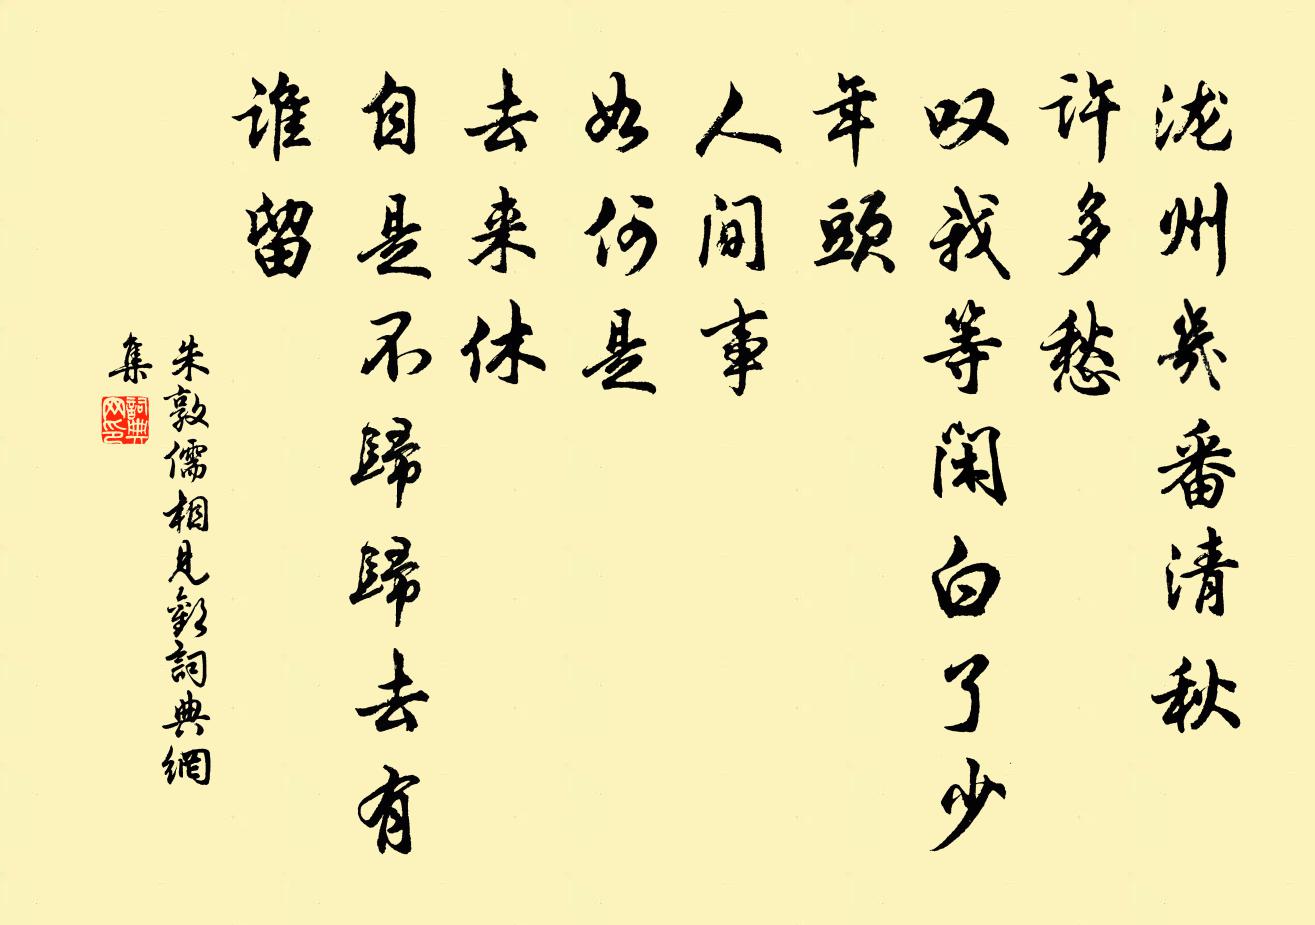 泷州幾番清秋
许多愁
叹我等闲白了少
年頭
人间事
如何是
去来休
自是不歸歸去有
谁留
朱敦儒相見歡詞典網
集
詞典
网印